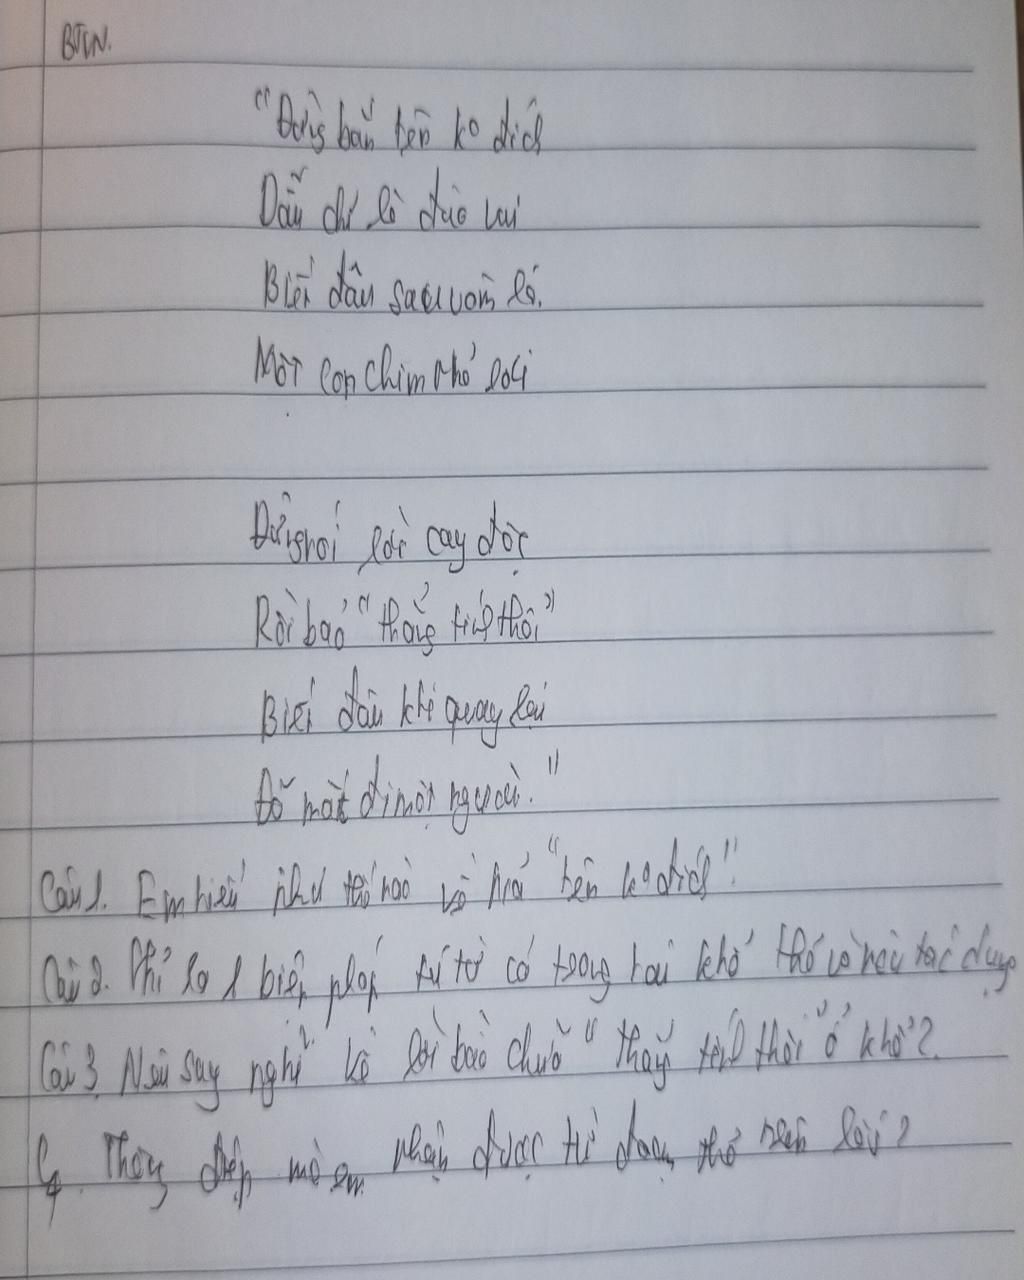 BTVN.
"Đừng bắn tên ko đích
Dẫu chỉ là đùa vui
Biết đâu sau vòm lá.
Một con chim nhỏ rơi
Đừng nói lời cay độc
Rồi bảo "thẳng tính thôi"
Biết đâu khi quay lại
Đã mất đi một người."
Câu 1. Em hiểu như thế nào về h/a "tên ko đích".
Câu 2. Chỉ ra 1 biện pháp tu từ có trong hai khổ thơ và nêu tác dụng
Câu 3. Nêu suy nghĩ về lời bào chữa "thẳng tính thôi" ở khổ 2.
4. Thông điệp mà em nhận được từ đoạn thơ trên là gì?